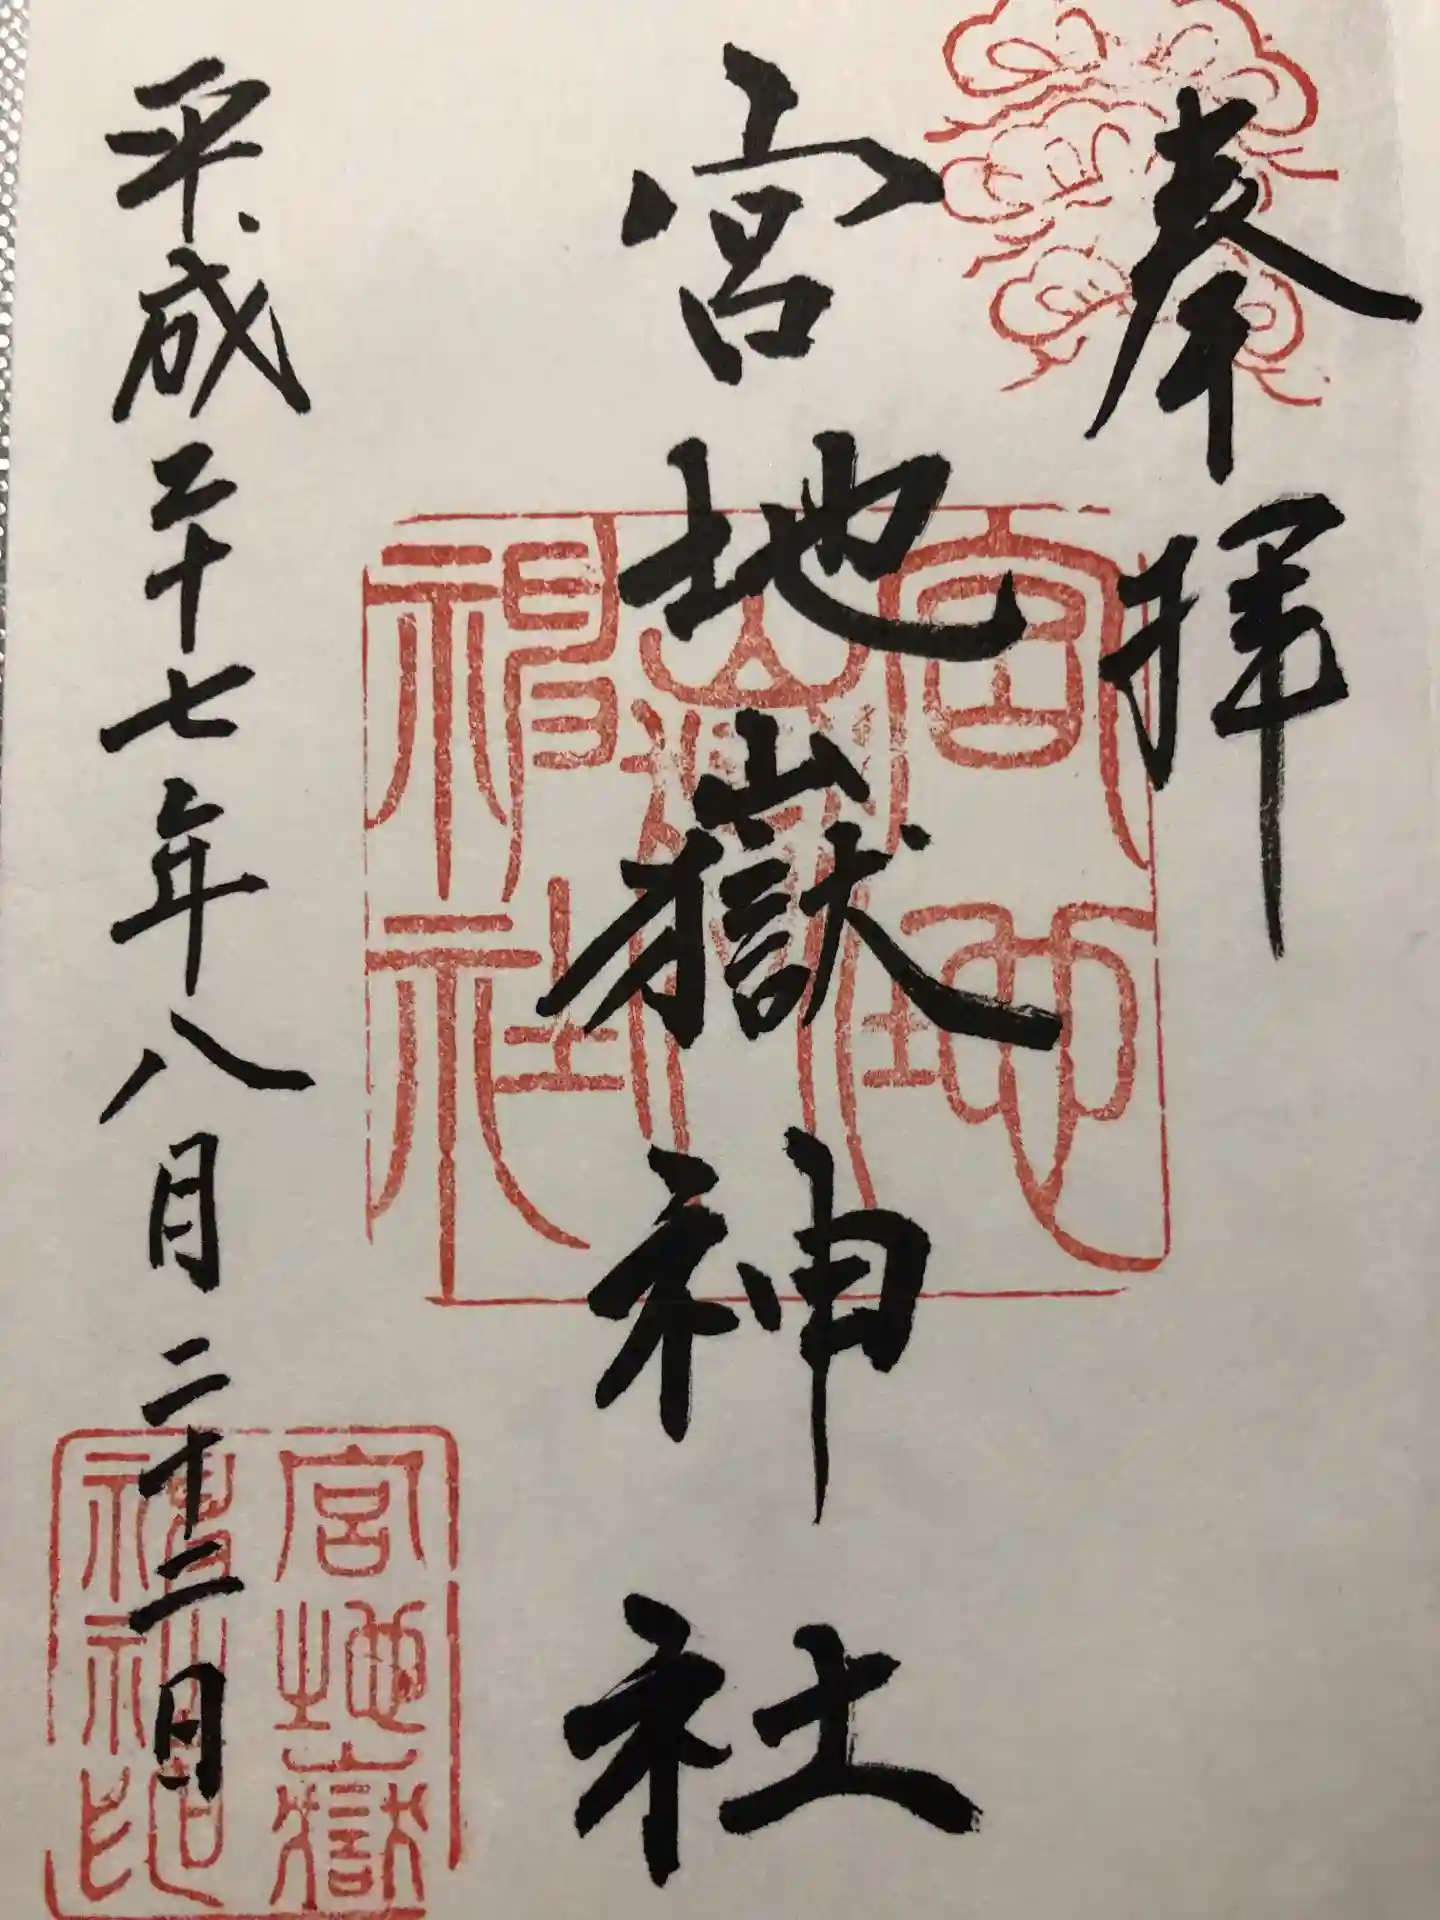 奉拝
宮地嶽神社
平成二十七年八月二十二日
宮地嶽神社
宮地嶽
神社